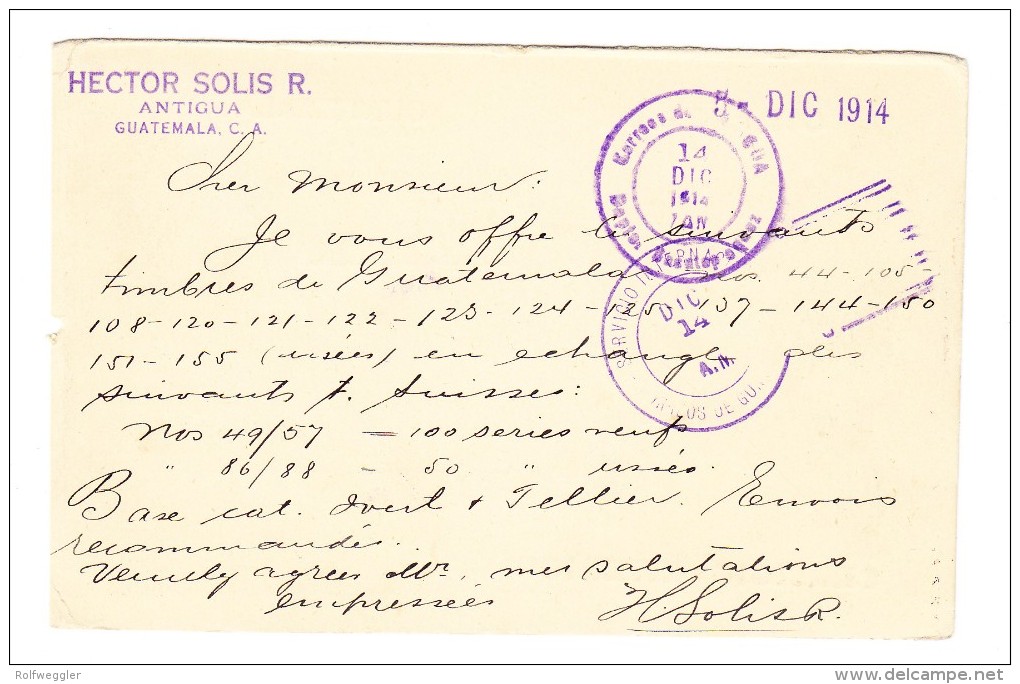 HECTOR SOLIS R.
ANTIGUA
GUATEMALA, C. A.
5 - DIC 1914
Correos de
14
DIC
1914
SERVICIO INTERNAC
DIC
14
A.M.
Cher Monsieur:
Je vous offre les suivants
timbres de Guatemala Nos. 44-105
108-120-121-122-123-124-125-137-144-150
151-155 (usées) en echange des
suivants t. Suisses:
Nos 49/57 = 100 series neufs
" 86/88 - 50 " usées.
Base cat. Ivert & Tellier. Envois
recommandés.
Veuilly agréer Mr. mes salutations
empressées H. Solis R.
Rolfweggler
www.delcampe.net